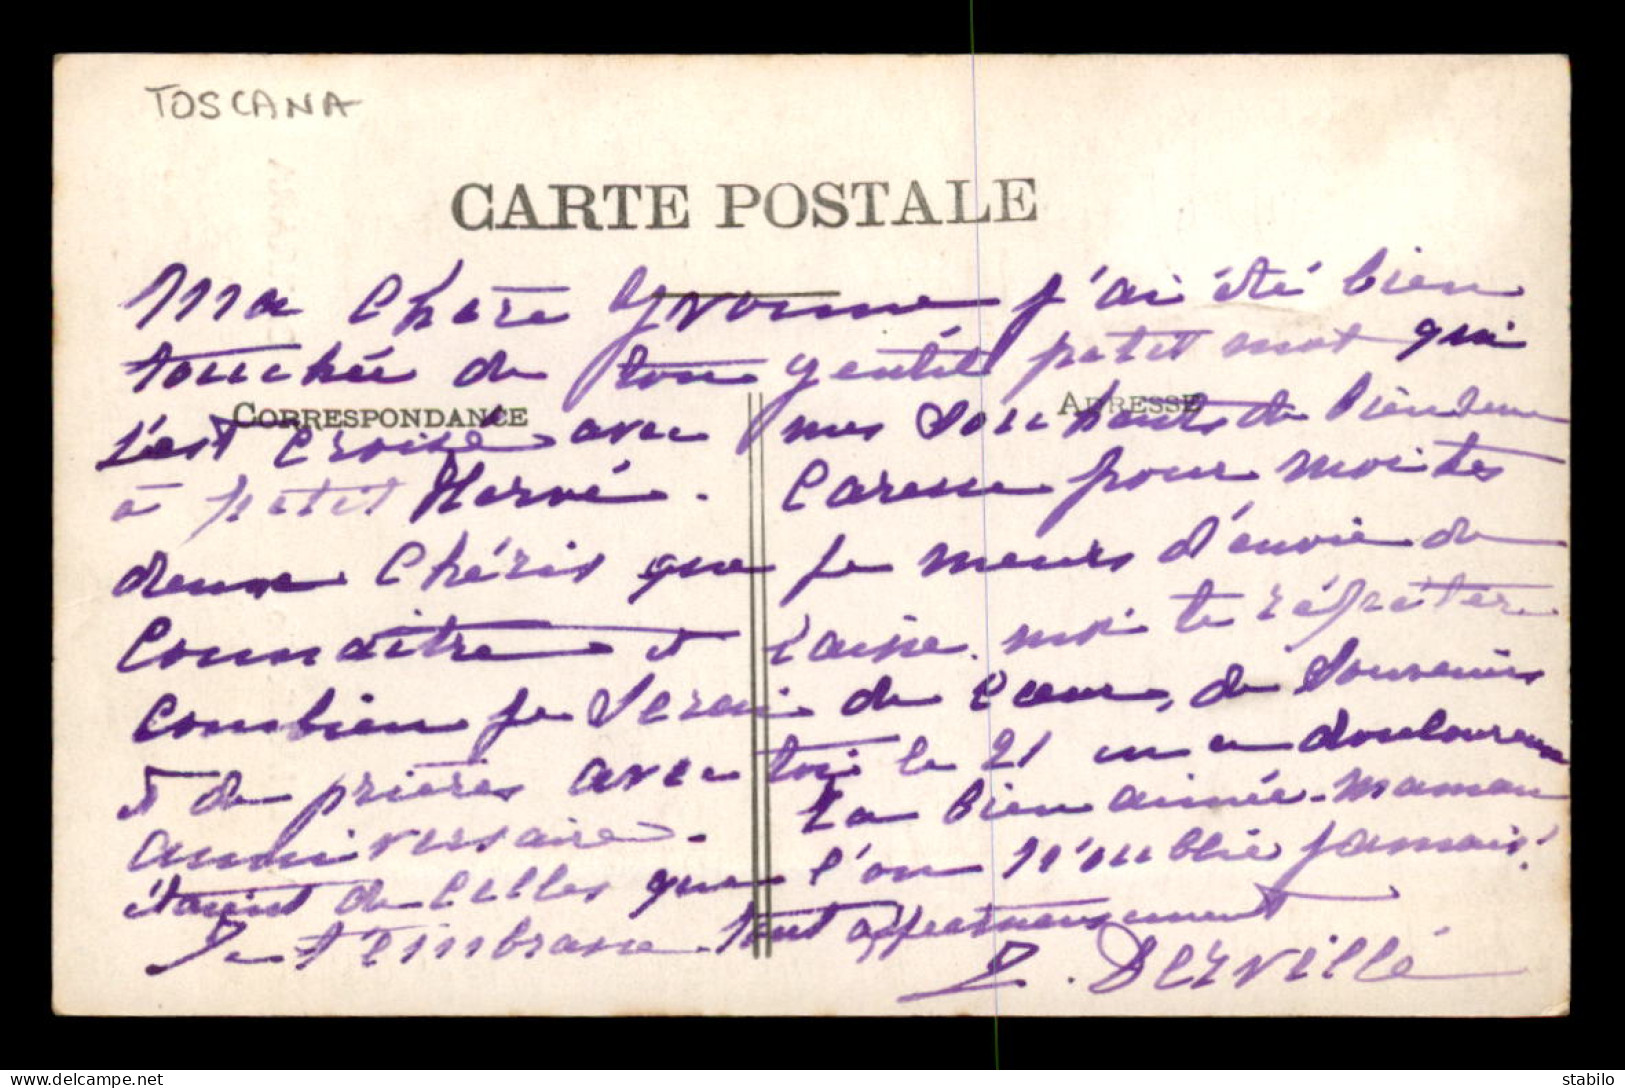 TOSCANA
CARTE POSTALE
Ma Chère Yvonne j'ai été bien
touchée de ton gentil petit mot qui
CORRESPONDANCE
ADRESSE
s'est croisé avec mes Souhaits de bienvenue
à petit Hervé. Caresse pour moi tes
deux Chéris que je meurs d'envie de
Connaître et laisse-moi te répéter
Combien je Serai de Cœur, de Souvenirs
et de prières avec toi le 21 douloureux
anniversaire. Ta bien aimée Maman
étaient de Celles que l'on n'oublie jamais!
Je t'embrasse tout affectueusement
Dervillé
stabilo